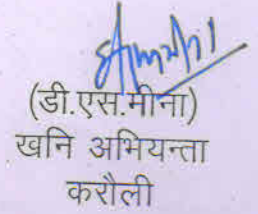 (डी.एस.मीना)
खनि अभियन्ता
करौली